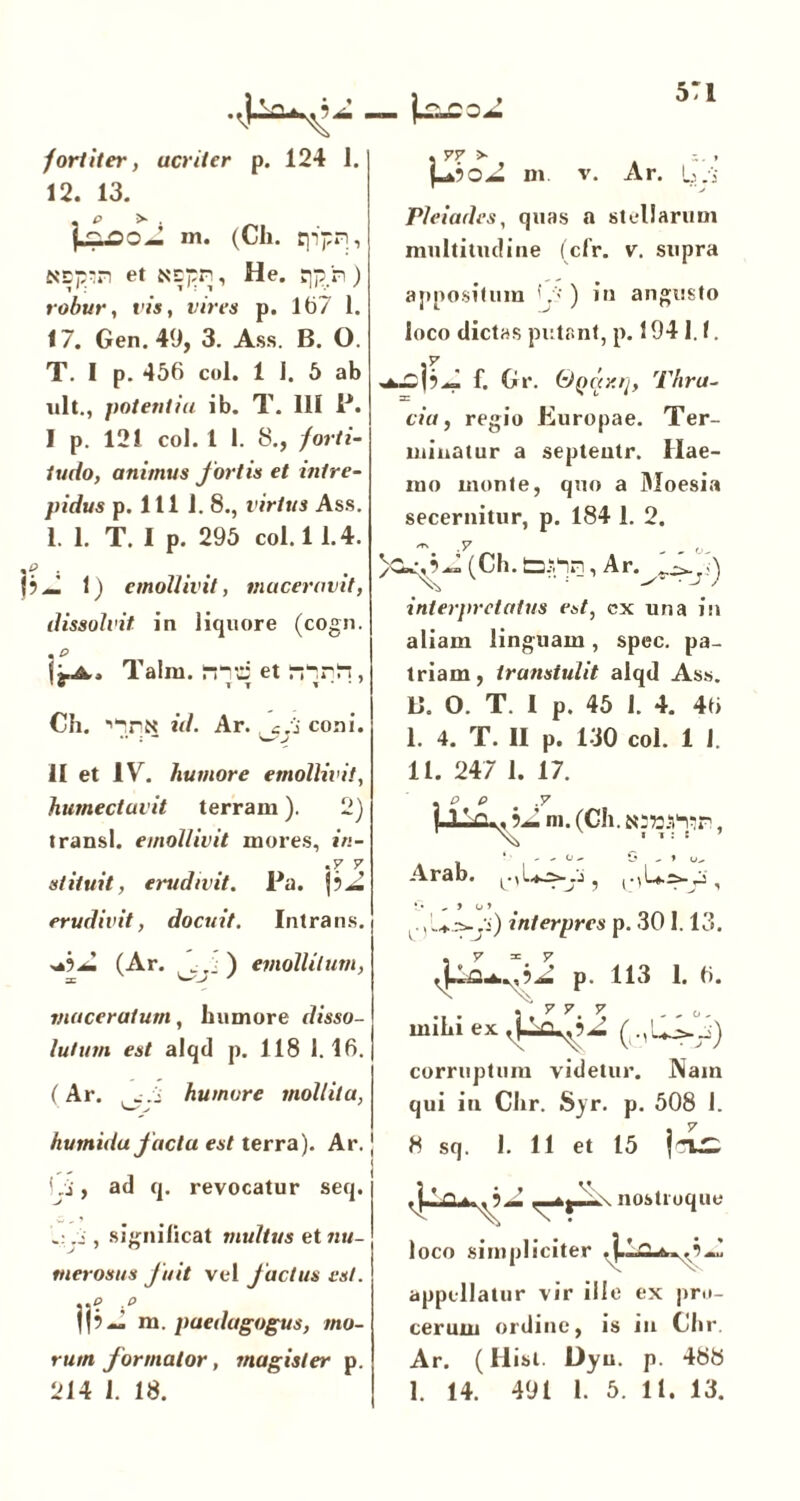 571
ܬܘܩܦܐ —
fortiter, acriter p. 124 l.
12. 13.
ܬܘܩܦܐ m. (Ch. תקוף,
תוקפא et תקפא, He. תקף)
robur, vis, vires p. 167 l.
17. Gen. 49, 3. Ass. B. O.
T. I p. 456 col. 1 l. 5 ab
ult., potentia ib. T. III P.
I p. 121 col. 1 l. 8., forti-
tudo, animus fortis et intre-
pidus p. 111 l. 8., virtus Ass.
l. l. T. I p. 295 col. 1 l. 4.
ܬܪܐ 1) emollivit, maceravit,
dissolvit in liquore (cogn.
ܫܪܐ. Talm. שרה et התרה,
Ch. אתרי id. Ar. ثرى coni.
II et IV. humore emollivit,
humectavit terram). 2)
transl. emollivit mores, in-
stituit, erudivit. Pa. ܬܪܐ
erudivit, docuit. Intrans.
ܬܪܝ (Ar. ثرى) emollitum,
maceratum, humore disso-
lutum est alqd p. 118 l. 16.
(Ar. ثرى humore mollita,
humida facta est terra). Ar.
ثرا, ad q. revocatur seq.
ثريا, significat multus et nu-
merosus fuit vel factus est.
ܬܪܐܐ m. paedagogus, mo-
rum formator, magister p.
214 l. 18.
ܬܘܪܝܐ m. v. Ar. ثريا
Pleiades, quas a stellarum
multitudine (cfr. v. supra
appositum ثرا) in angusto
loco dictas putant, p. 194 l. 1.
ܬܪܐܩܝ f. Gr. Θρᾴκη, Thra-
cia, regio Europae. Ter-
minatur a septentr. Hae-
mo monte, quo a Moesia
secernitur, p. 184 l. 2.
ܬܪܓܡ (Ch. תרגם, Ar. ترجم)
interpretatus est, ex una in
aliam linguam, spec. pa-
triam, transtulit alqd Ass.
B. O. T. I p. 45 l. 4. 46
l. 4. T. II p. 130 col. 1 l.
11. 247 l. 17.
ܬܪܓܡܢܐ m. (Ch. תורגמנא,
Arab. ترجمان, ترجمان,
ترجمان) interpres p. 30 l. 13.
p. 113 l. 6.
mihi ex (ترجمان)
corruptum videtur. Nam
qui in Chr. Syr. p. 508 l.
8 sq. l. 11 et 15
nostroque
loco simpliciter
appellatur vir ille ex pro-
cerum ordine, is in Chr.
Ar. (Hist. Dyn. p. 488
l. 14. 491 l. 5. 11. 13.